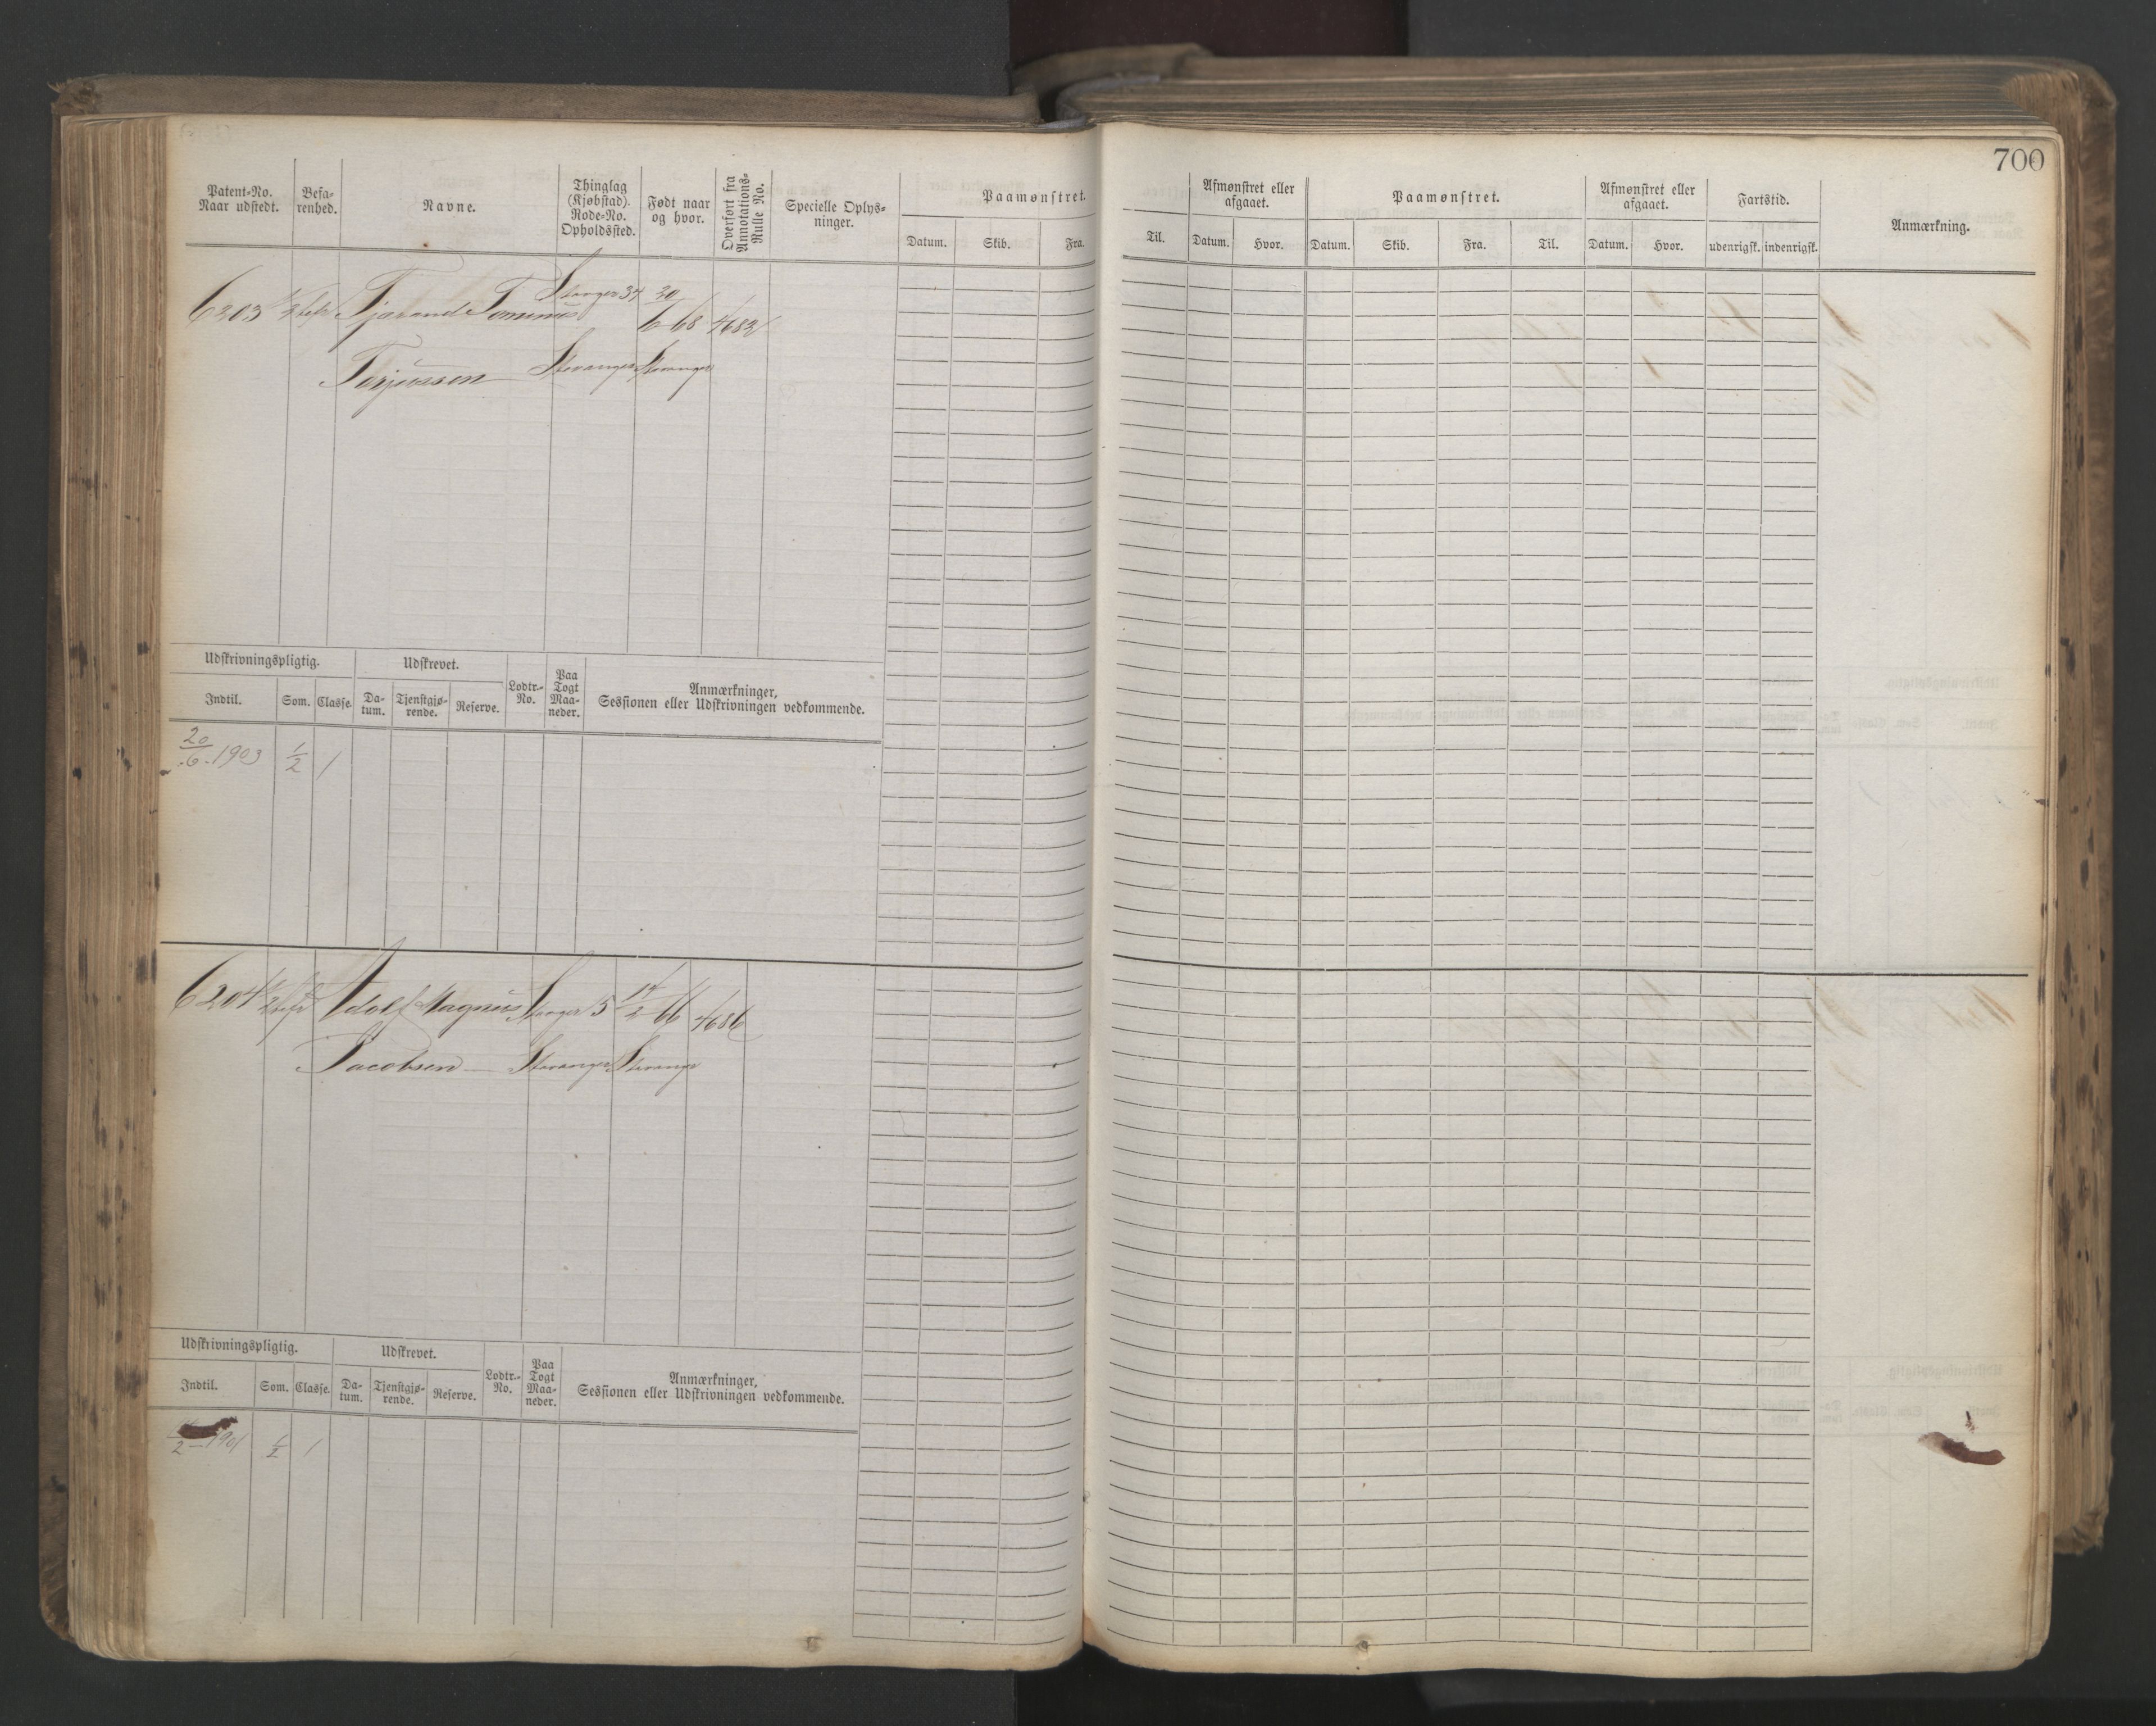 700
Patent-No. Naar udstedt. Befarenhed. Navne. Thinglag (Kjøbstad). Rode-No. Opholdssted. Født naar og hvor. Overført fra Annotations-Rulle No. Specielle Oplysninger. Paamønstret.
Datum. Skib. Fra.
Afmønstret eller afgaaet. Paamønstret. Afmønstret eller afgaaet. Fartstid. Anmærkning.
Til. Datum. Hvor. Datum. Skib. Fra. Til. Datum. Hvor. udenrigsk. indenrigsk.
6203 1/2 bef Tjerand Tominus Stavanger 34 20/6 68 4682
Torjussen Stavanger Stavanger
Udskrivningspligtig. Udskrevet. Lodtr.-No. Paa Togt Maaneder. Anmærkninger, Sessionen eller Udskrivningen vedkommende.
Indtil. Som. Classe. Datum. Tjenstgjørende. Reserve.
20/6 1903 1/2 1
6204 1/2 bef Adolf Magnus Stavanger 5 14/2 66 4686
Jacobsen Stavanger Stavanger
Udskrivningspligtig. Udskrevet. Lodtr.-No. Paa Togt Maaneder. Anmærkninger, Sessionen eller Udskrivningen vedkommende.
Indtil. Som. Classe. Datum. Tjenstgjørende. Reserve.
2 1901 1/2 1